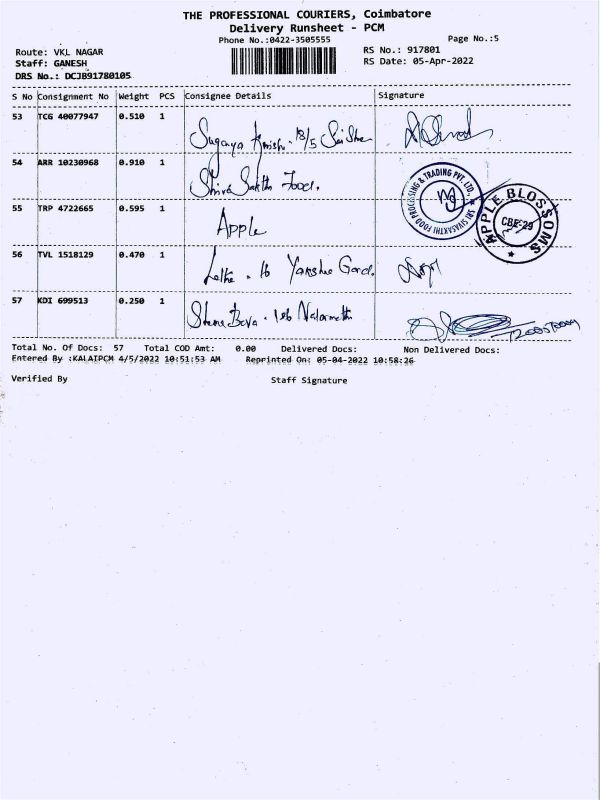 THE PROFESSIONAL COURIERS, Coimbatore
Delivery Runsheet - PCM
Phone No.:0422-3505555
Page No.:5
Route: VKL NAGAR
RS No.: 917801
Staff: GANESH
RS Date: 05-Apr-2022
DRS No.: DCJB91780105
S No Consignment No Weight PCS Consignee Details Signature
53 TCG 40077947 0.510 1
54 ARR 10230968 0.910 1 Shiva Sakthi Food.
SRI SIVASAKTHI FOOD PROCESSING & TRADING PVT. LTD.
APPLE BLOSSOMS
CBE-29
55 TRP 4722665 0.595 1 Apple
56 TVL 1518129 0.470 1
57 KDI 699513 0.250 1
Total No. Of Docs: 57 Total COD Amt: 0.00 Delivered Docs: Non Delivered Docs:
Entered By :KALAIPCM 4/5/2022 10:51:53 AM Reprinted On: 05-04-2022 10:58:26
Verified By Staff Signature